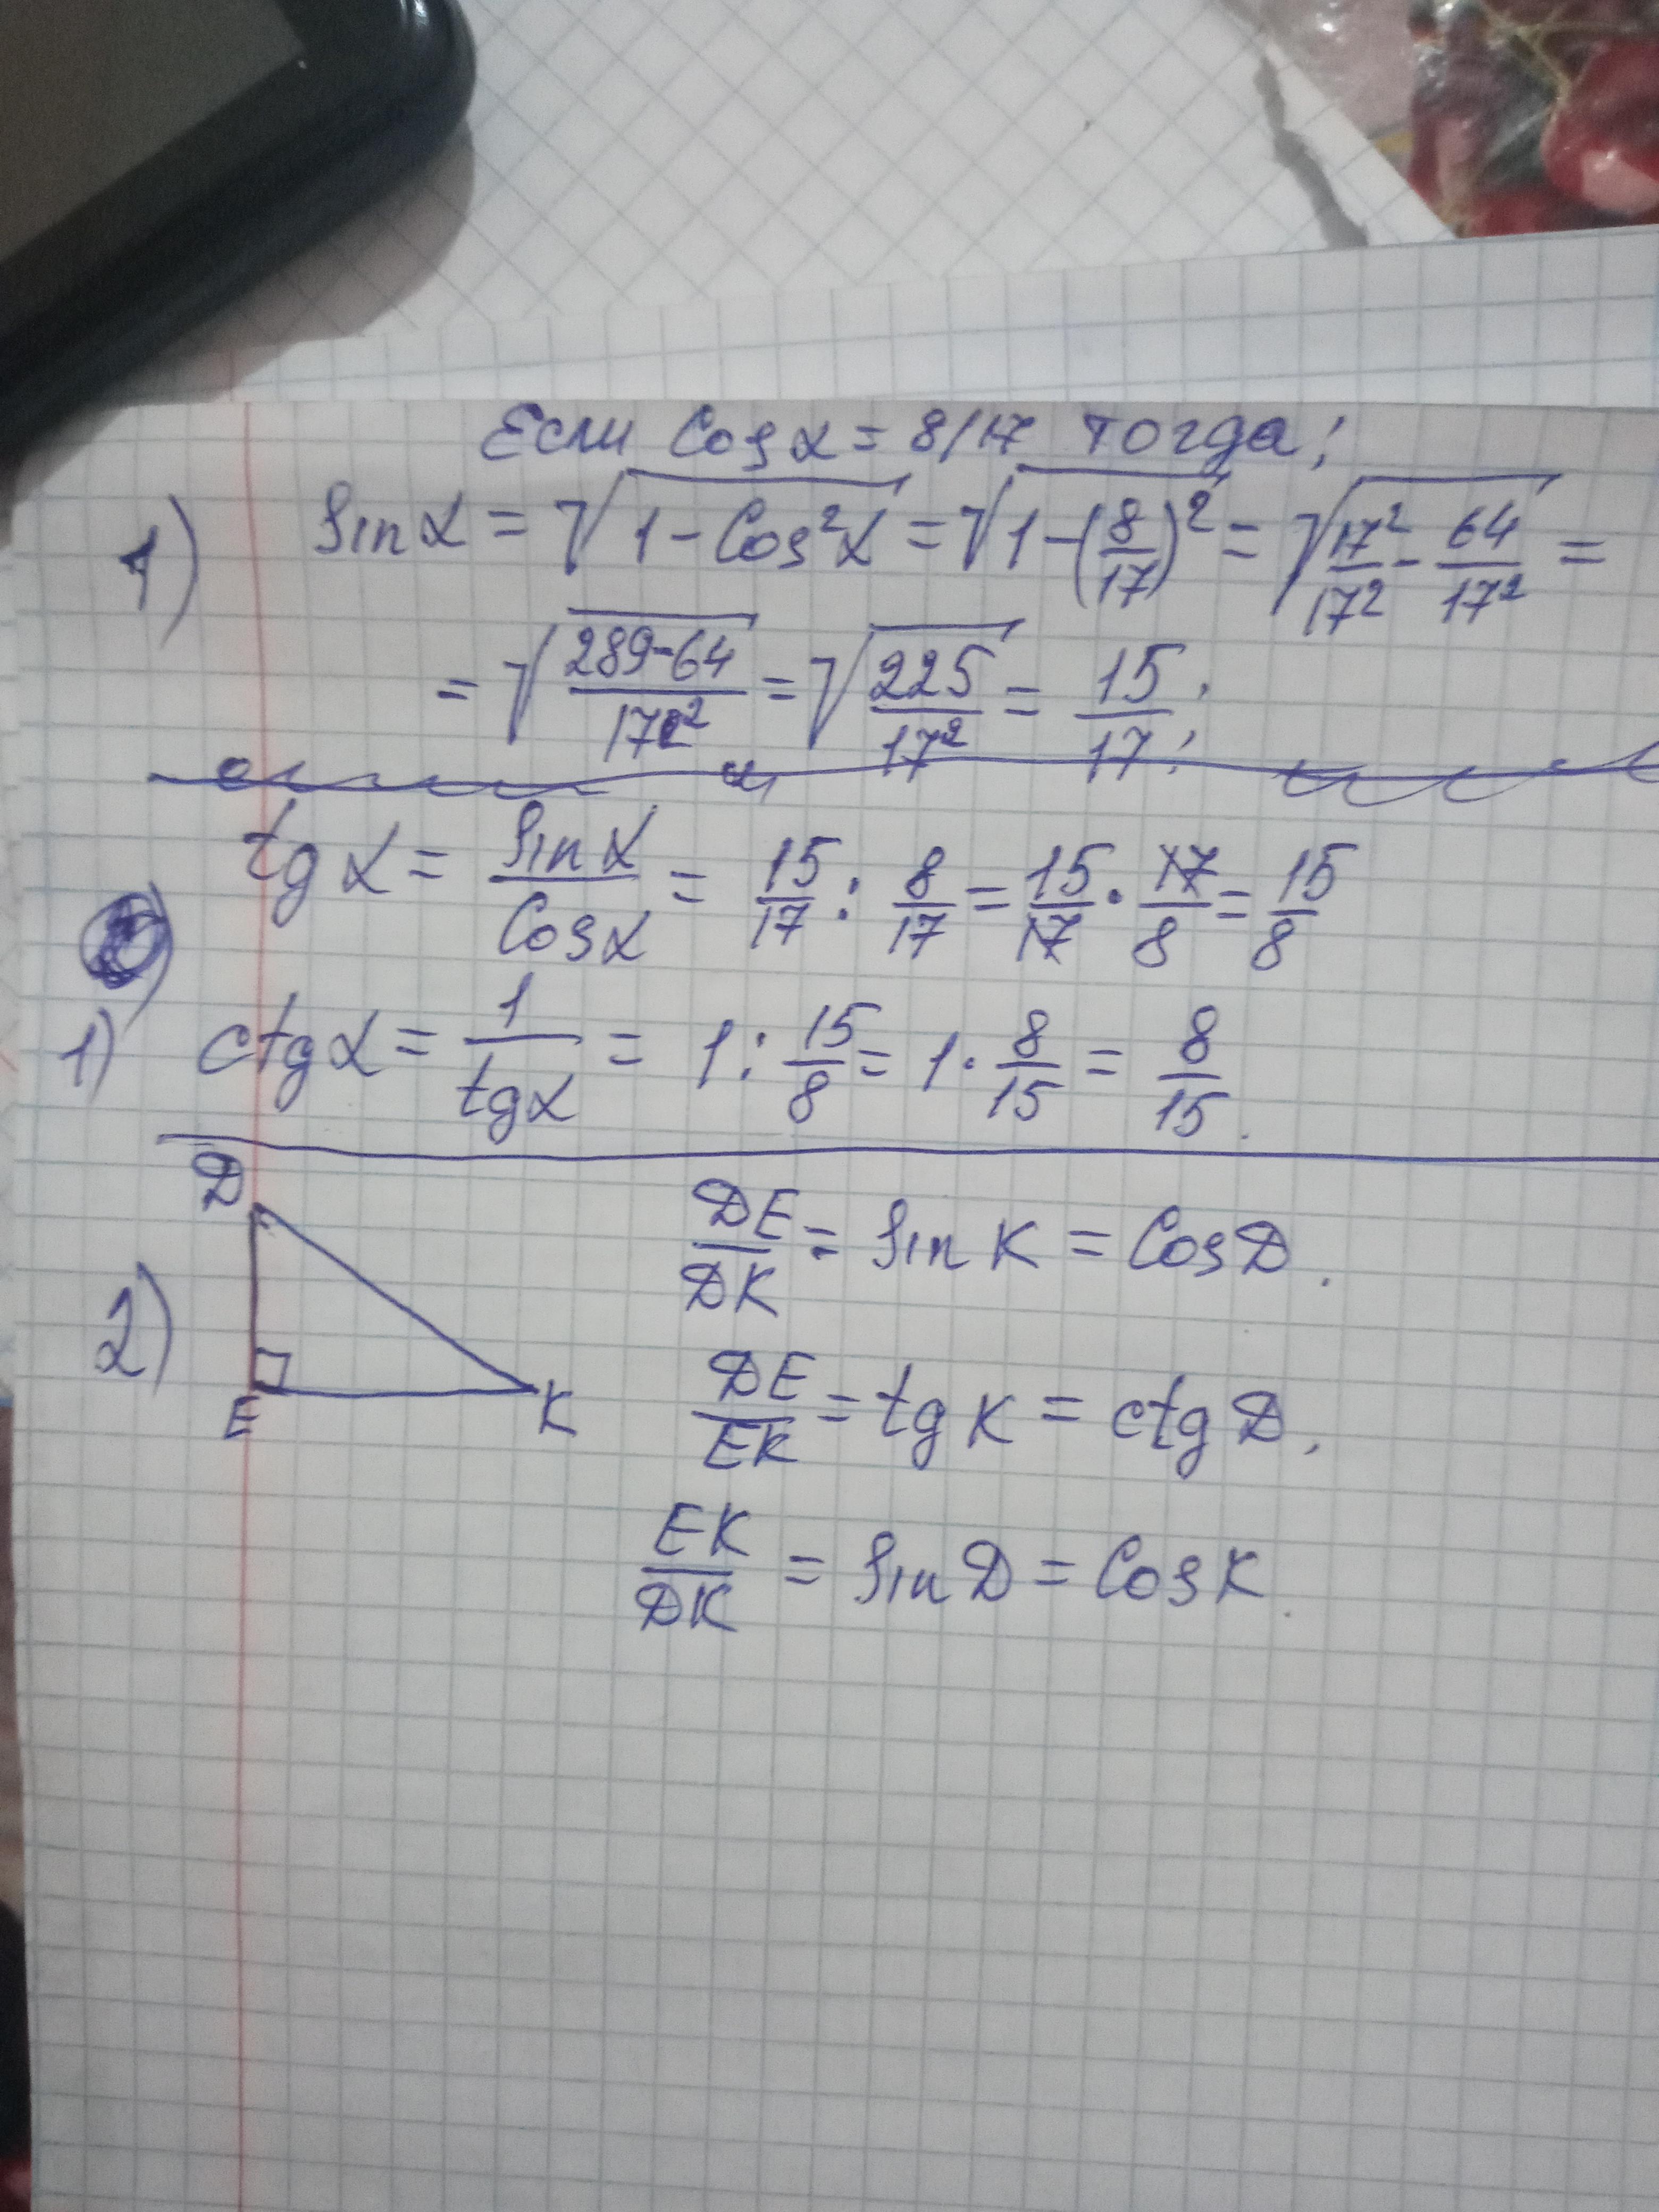 Если Cosα = 8/17 тогда;
1) sinα = √(1 - Cos²α) = √(1 - (8/17)²) = √(17²/17² - 64/17²) =
= √((289-64)/17²) = √(225/17²) = 15/17;
tgα = sinα/Cosα = 15/17 : 8/17 = 15/17 · 17/8 = 15/8
1) ctgα = 1/tgα = 1 : 15/8 = 1 · 8/15 = 8/15.
2)
D
E
K
DE/DK = sin K = Cos D.
DE/EK = tg K = ctg D.
EK/DK = sin D = Cos K.